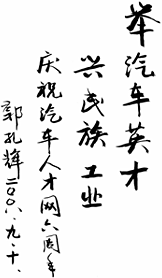 举汽车英才
兴民族工业
庆祝汽车人才网六周年
郭孔辉二〇〇八.九.十.